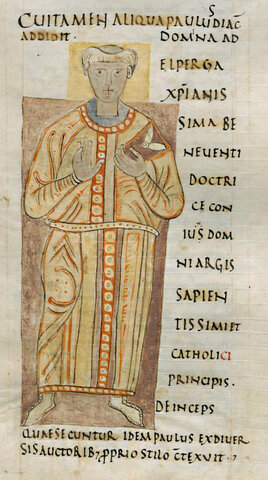 CUI TAMEN ALIQUA PAULUS DIAC
ADDIDIT . DOMNA AD
ELPERGA
XPIANIS
SIMA BE
NEVENTI
DOCTRI
CE CON
IUS DOM
NI ARGIS
SAPIEN
TISSIMI ET
CATHOLICI
PRINCIPIS .
DEINCEPS
QUAE SECUNTUR IDEM PAULUS EX DIVER
SIS AUCTORIB; PPRIO STILO CTEXUIT .